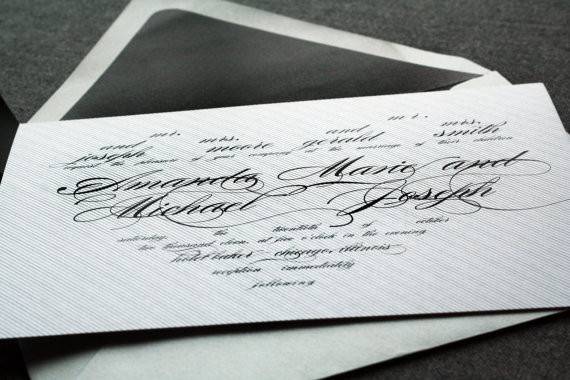 mr. mrs. and mr.
and joseph moore gerald smith
request the pleasure of your company at the marriage of their children
Amanda Marie and
Michael Joseph
saturday, the twentieth of october
two thousand eleven at five o'clock in the evening
hotel baker - chicago, illinois
reception immediately
following